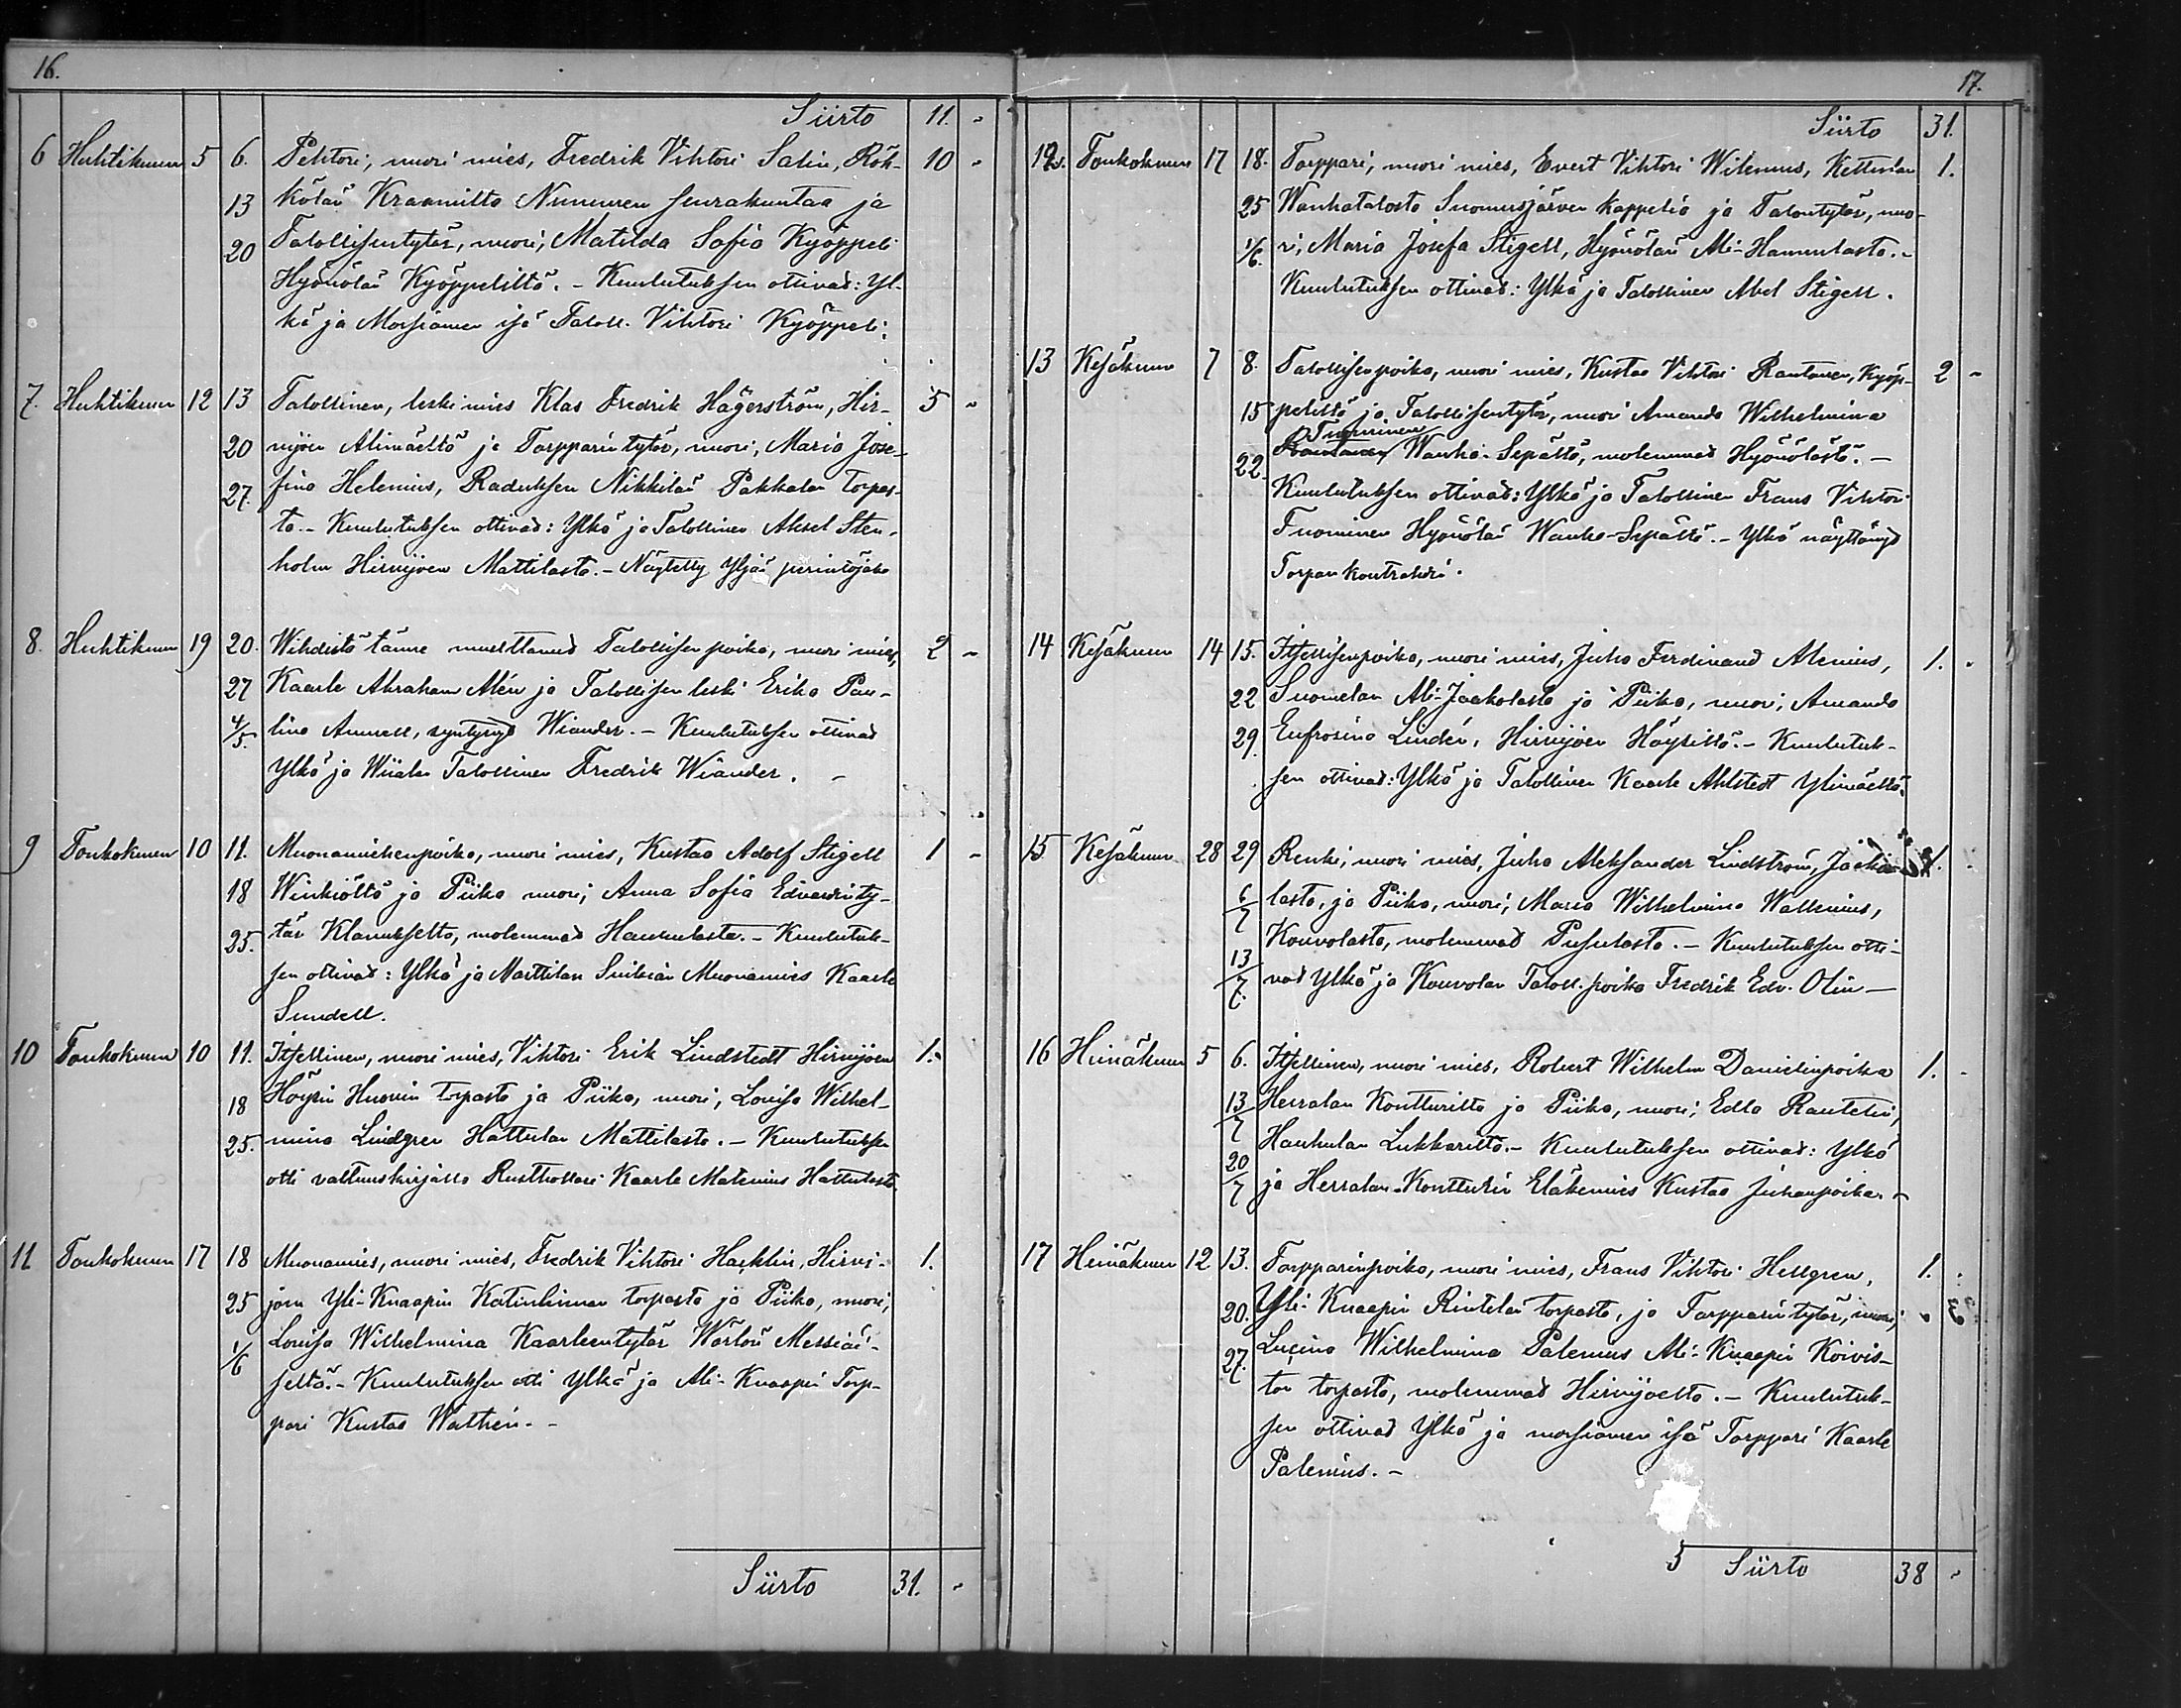 16.
Siirto 11. -
6 Huhtikuun 5 6. Pehtori, nuori mies, Fredrik Vihtori Salin, Röh- 10 -
13 kölän Kraamilta Nummen seurakuntaa ja
20 Talollisentytär, nuori, Matilda Sofia Kyöppeli
Hyönölän Kyöppeliltä. - Kuulutuksen ottivad: Yl-
kä ja Morsiamen isä Taloll. Vihtori Kyöppeli.
7. Huhtikuun 12 13 Talollinen, leskimies Klas Fredrik Hägerström, Hir- 5 -
20 vijoen Alimäeltä ja Torpparintytär, nuori, Maria Jose-
27. fina Helenius, Raduksen Nikkilän Pakkalan torpas-
ta. - Kuulutuksen ottivad: Ylkä ja Talollinen Aksel Sten-
holm Hirvijoen Mattilasta. - Näytetty Yljän perintöjako
8. Huhtikuun 19 20. Wihdistä tänne muuttanud Talollisen poika, nuori mies, 2 -
27 Kaarle Abraham Alén ja Talollisen leski Erika Pau-
4/5. lina Annell, syntynyt Wiander. - Kuulutuksen ottivad
Ylkä ja Wiialan Talollinen Fredrik Wiander. -
9 Toukokuun 10 11. Muonamiehenpoika, nuori mies, Kustaa Adolf Stigell 1 -
18 Winkiöltä ja Piika nuori, Anna Sofia Edvardinty-
25. tär Klaunkselta, molemmad Haukulasta. - Kuulutuk-
sen ottivad: Ylkä ja Marttilan Muonamies Kaarle
Sundell.
10 Toukokuun 10 11. Itsellinen, nuori mies, Vihtori Erik Lindstedt Hirvijoen 1. -
18 Höysin Huonin torpasta ja Piika, nuori, Lovisa Wilhel-
25. mina Lindgren Hattulan Mattilasta. - Kuulutuksen
otti valtuuskirjalla Rusthollari Kaarle Malenius Hattulasta.
11 Toukokuun 17 18 Muonamies, nuori mies, Fredrik Vihtori Hacklin, Hirvi- 1.
25 joen Yli-Knaapin Katinlinnan torpasta ja Piika, nuori,
1/6 Lovisa Wilhelmina Kaarleentytär
seltä. - Kuulutuksen otti Ylkä ja Ali-Knaapin Torp-
pari Kustaa Wathén. -
Siirto 31. -
17.
Siirto 31.
12. Toukokuun 17 18. Torppari, nuori mies, Evert Vihtori Wilenius, Kettulan 1.
25 Wanhatalosta Suomusjärven kappelia ja Talontytär, nuo-
1/6. ri, Maria Josefa Stigell, Hyönölän Ali-Hannulasta. -
Kuulutuksen ottivad: Ylkä ja Talollinen Abel Stigell.
13 Kesäkuun 7 8. Talollisenpoika, nuori mies, Kustaa Vihtori Rantanen, Kyöp- 2 -
15 peliltä ja Talollisentytär, nuori Amanda Wilhelmina
Tuominen
22. Rantanen Wanha-Sepästä, molemmad Hyönölästä. -
Kuulutuksen ottivad: Ylkä ja Talollinen Frans Vihtori
Tuominen Hyönölän Wanha-Sepältä. - Ylkä näyttänyt
Torpankontrahdi.
14 Kesäkuun 14 15. Itsellisenpoika, nuori mies, Juho Ferdinand Alenius, 1. -
22 Suomelan Ali-Jaakolasta ja Piika, nuori, Amanda
29. Eufrosina Lindén, Hirvijoen Höysiltä. - Kuulutuk-
sen ottivad: Ylkä ja Talollinen Kaarle Ahlstedt Ylimäeltä.
15 Kesäkuun 28 29 Renki, nuori mies, Juho Aleksander Lindström, Jaako- 1. -
6/7 lasta, ja Piika, nuori, Maria Wilhelmina Wallenius,
13/7. Kouvolasta, molemmad Pusulasta. - Kuulutuksen otti-
vad Ylkä ja Kouvolan Taloll. poika Fredrik Edv. Olin -
16 Heinäkuun 5 6. Itsellinen, nuori mies, Robert Wilhelm Danielinpoika 1. -
13/7 Herralan Kontturilta ja Piika, nuori, Edla Rautelin,
20/7 Haukulan Lukkarilta. - Kuulutuksen ottivad: Ylkä
ja Herralan Kontturin Eläkemies Kustaa Juhanpoika. -
17 Heinäkuun 12 13. Torpparinpoika, nuori mies, Frans Vihtori Hellgren, 1.
20. Yli-Knaapin Rintelän torpasta, ja Torpparintytär, nuori,
27. Lusina Wilhelmina Palenius Ali-Knaapin Koivis-
ton torpasta, molemmad Hirvijoelta. - Kuulutuk-
sen ottivad Ylkä ja morsiamen isä Torppari Kaarle
Palenius. -
Siirto 38 -